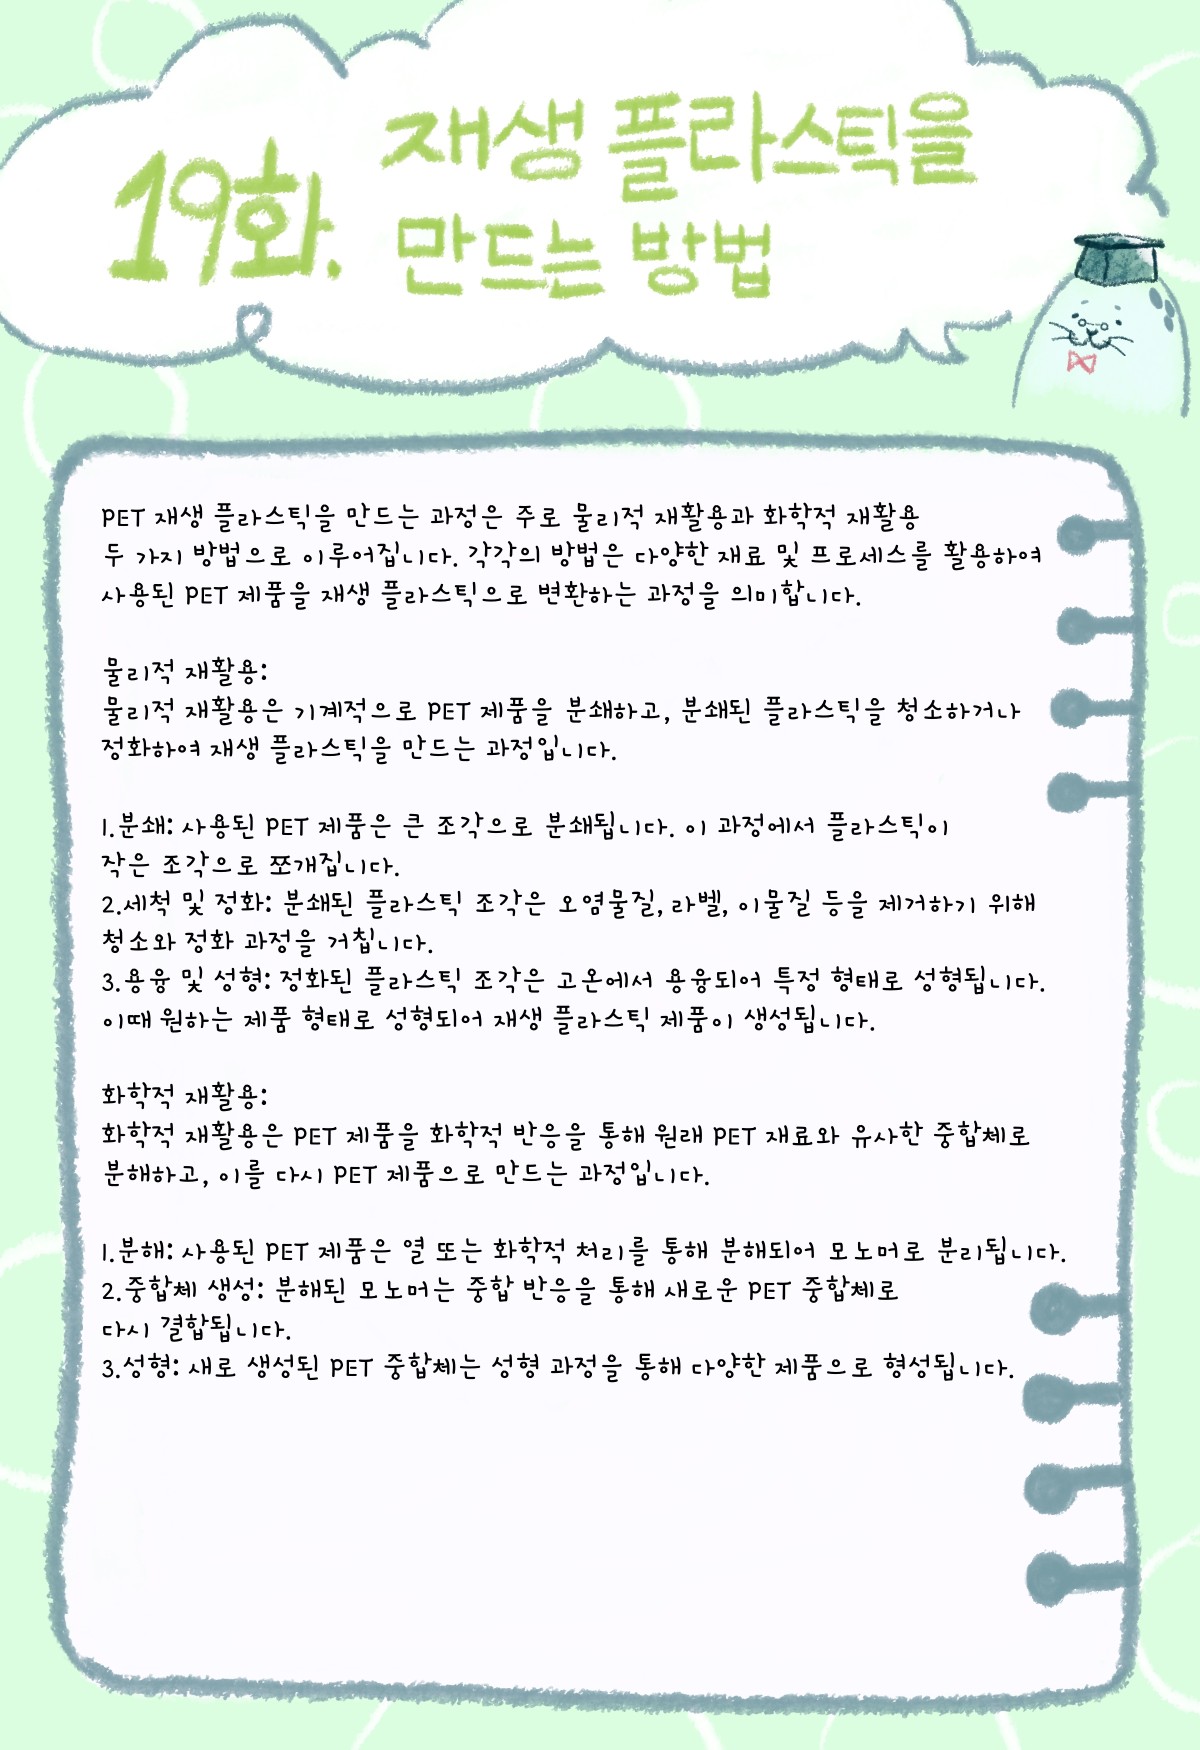 19화.
재생 플라스틱을
만드는 방법
PET 재생 플라스틱을 만드는 과정은 주로 물리적 재활용과 화학적 재활용
두 가지 방법으로 이루어집니다. 각각의 방법은 다양한 재료 및 프로세스를 활용하여
사용된 PET 제품을 재생 플라스틱으로 변환하는 과정을 의미합니다.
물리적 재활용:
물리적 재활용은 기계적으로 PET 제품을 분쇄하고, 분쇄된 플라스틱을 청소하거나
정화하여 재생 플라스틱을 만드는 과정입니다.
1.분쇄: 사용된 PET 제품은 큰 조각으로 분쇄됩니다. 이 과정에서 플라스틱이
작은 조각으로 쪼개집니다.
2.세척 및 정화: 분쇄된 플라스틱 조각은 오염물질, 라벨, 이물질 등을 제거하기 위해
청소와 정화 과정을 거칩니다.
3.용융 및 성형: 정화된 플라스틱 조각은 고온에서 용융되어 특정 형태로 성형됩니다.
이때 원하는 제품 형태로 성형되어 재생 플라스틱 제품이 생성됩니다.
화학적 재활용:
화학적 재활용은 PET 제품을 화학적 반응을 통해 원래 PET 재료와 유사한 중합체로
분해하고, 이를 다시 PET 제품으로 만드는 과정입니다.
1.분해: 사용된 PET 제품은 열 또는 화학적 처리를 통해 분해되어 모노머로 분리됩니다.
2.중합체 생성: 분해된 모노머는 중합 반응을 통해 새로운 PET 중합체로
다시 결합됩니다.
3.성형: 새로 생성된 PET 중합체는 성형 과정을 통해 다양한 제품으로 형성됩니다.